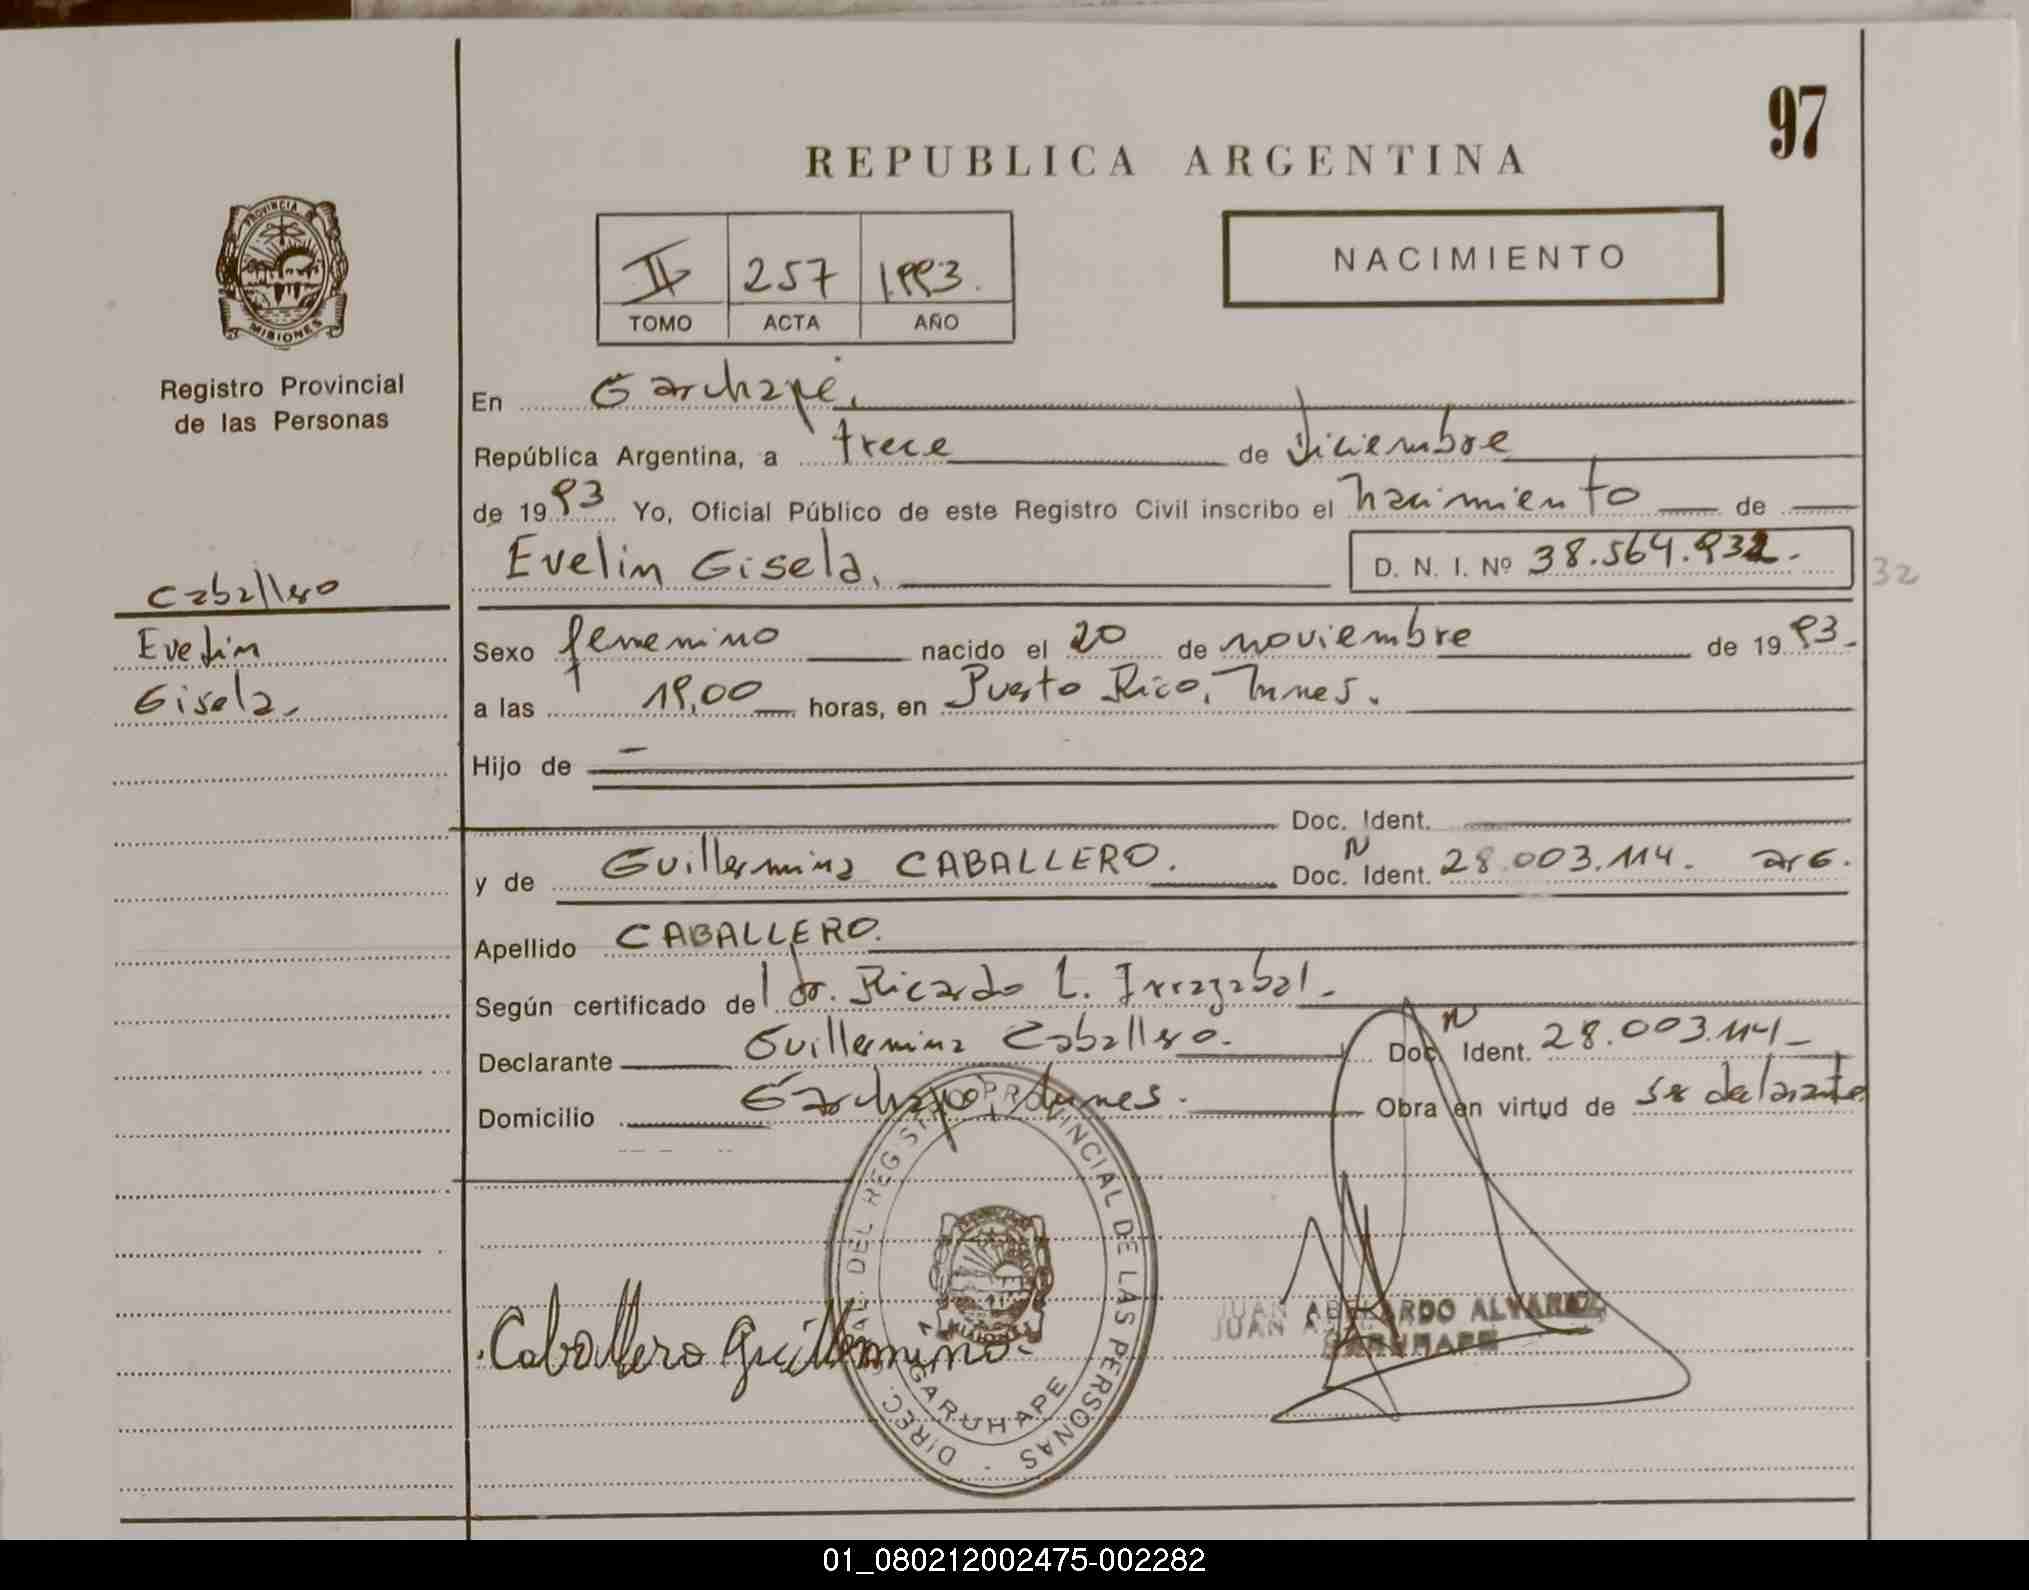 97
REPUBLICA ARGENTINA
PROVINCIA DE
MISIONES
Registro Provincial
de las Personas
II 257 1993.
TOMO ACTA AÑO
NACIMIENTO
En Garuhapé,
República Argentina, a trece de diciembre
de 1993 Yo, Oficial Público de este Registro Civil inscribo el nacimiento de
Evelin Gisela, D. N. I. Nº 38.564.932.-
32
Caballero
Evelin
Gisela.
Sexo femenino nacido el 20 de noviembre de 1993.-
a las 19,00 horas, en Puerto Rico, Mnes.
Hijo de -
Doc. Ident.
y de Guillermina CABALLERO. Doc. N Ident. 28.003.114. arG.
Apellido CABALLERO.
Según certificado del dr. Ricardo L. Irrazabal.-
Declarante Guillermina Caballero. Doc. N Ident. 28.003.114-
Domicilio Garuhape, Mnes. Obra en virtud de ser declarante
DIREC. GRAL. DEL REGISTRO PROVINCIAL DE LAS PERSONAS -
MISIONES
GARUHAPE
Caballero Guillermina.
JUAN ABELARDO ALVAREZ
GARUHAPE
01_080212002475-002282